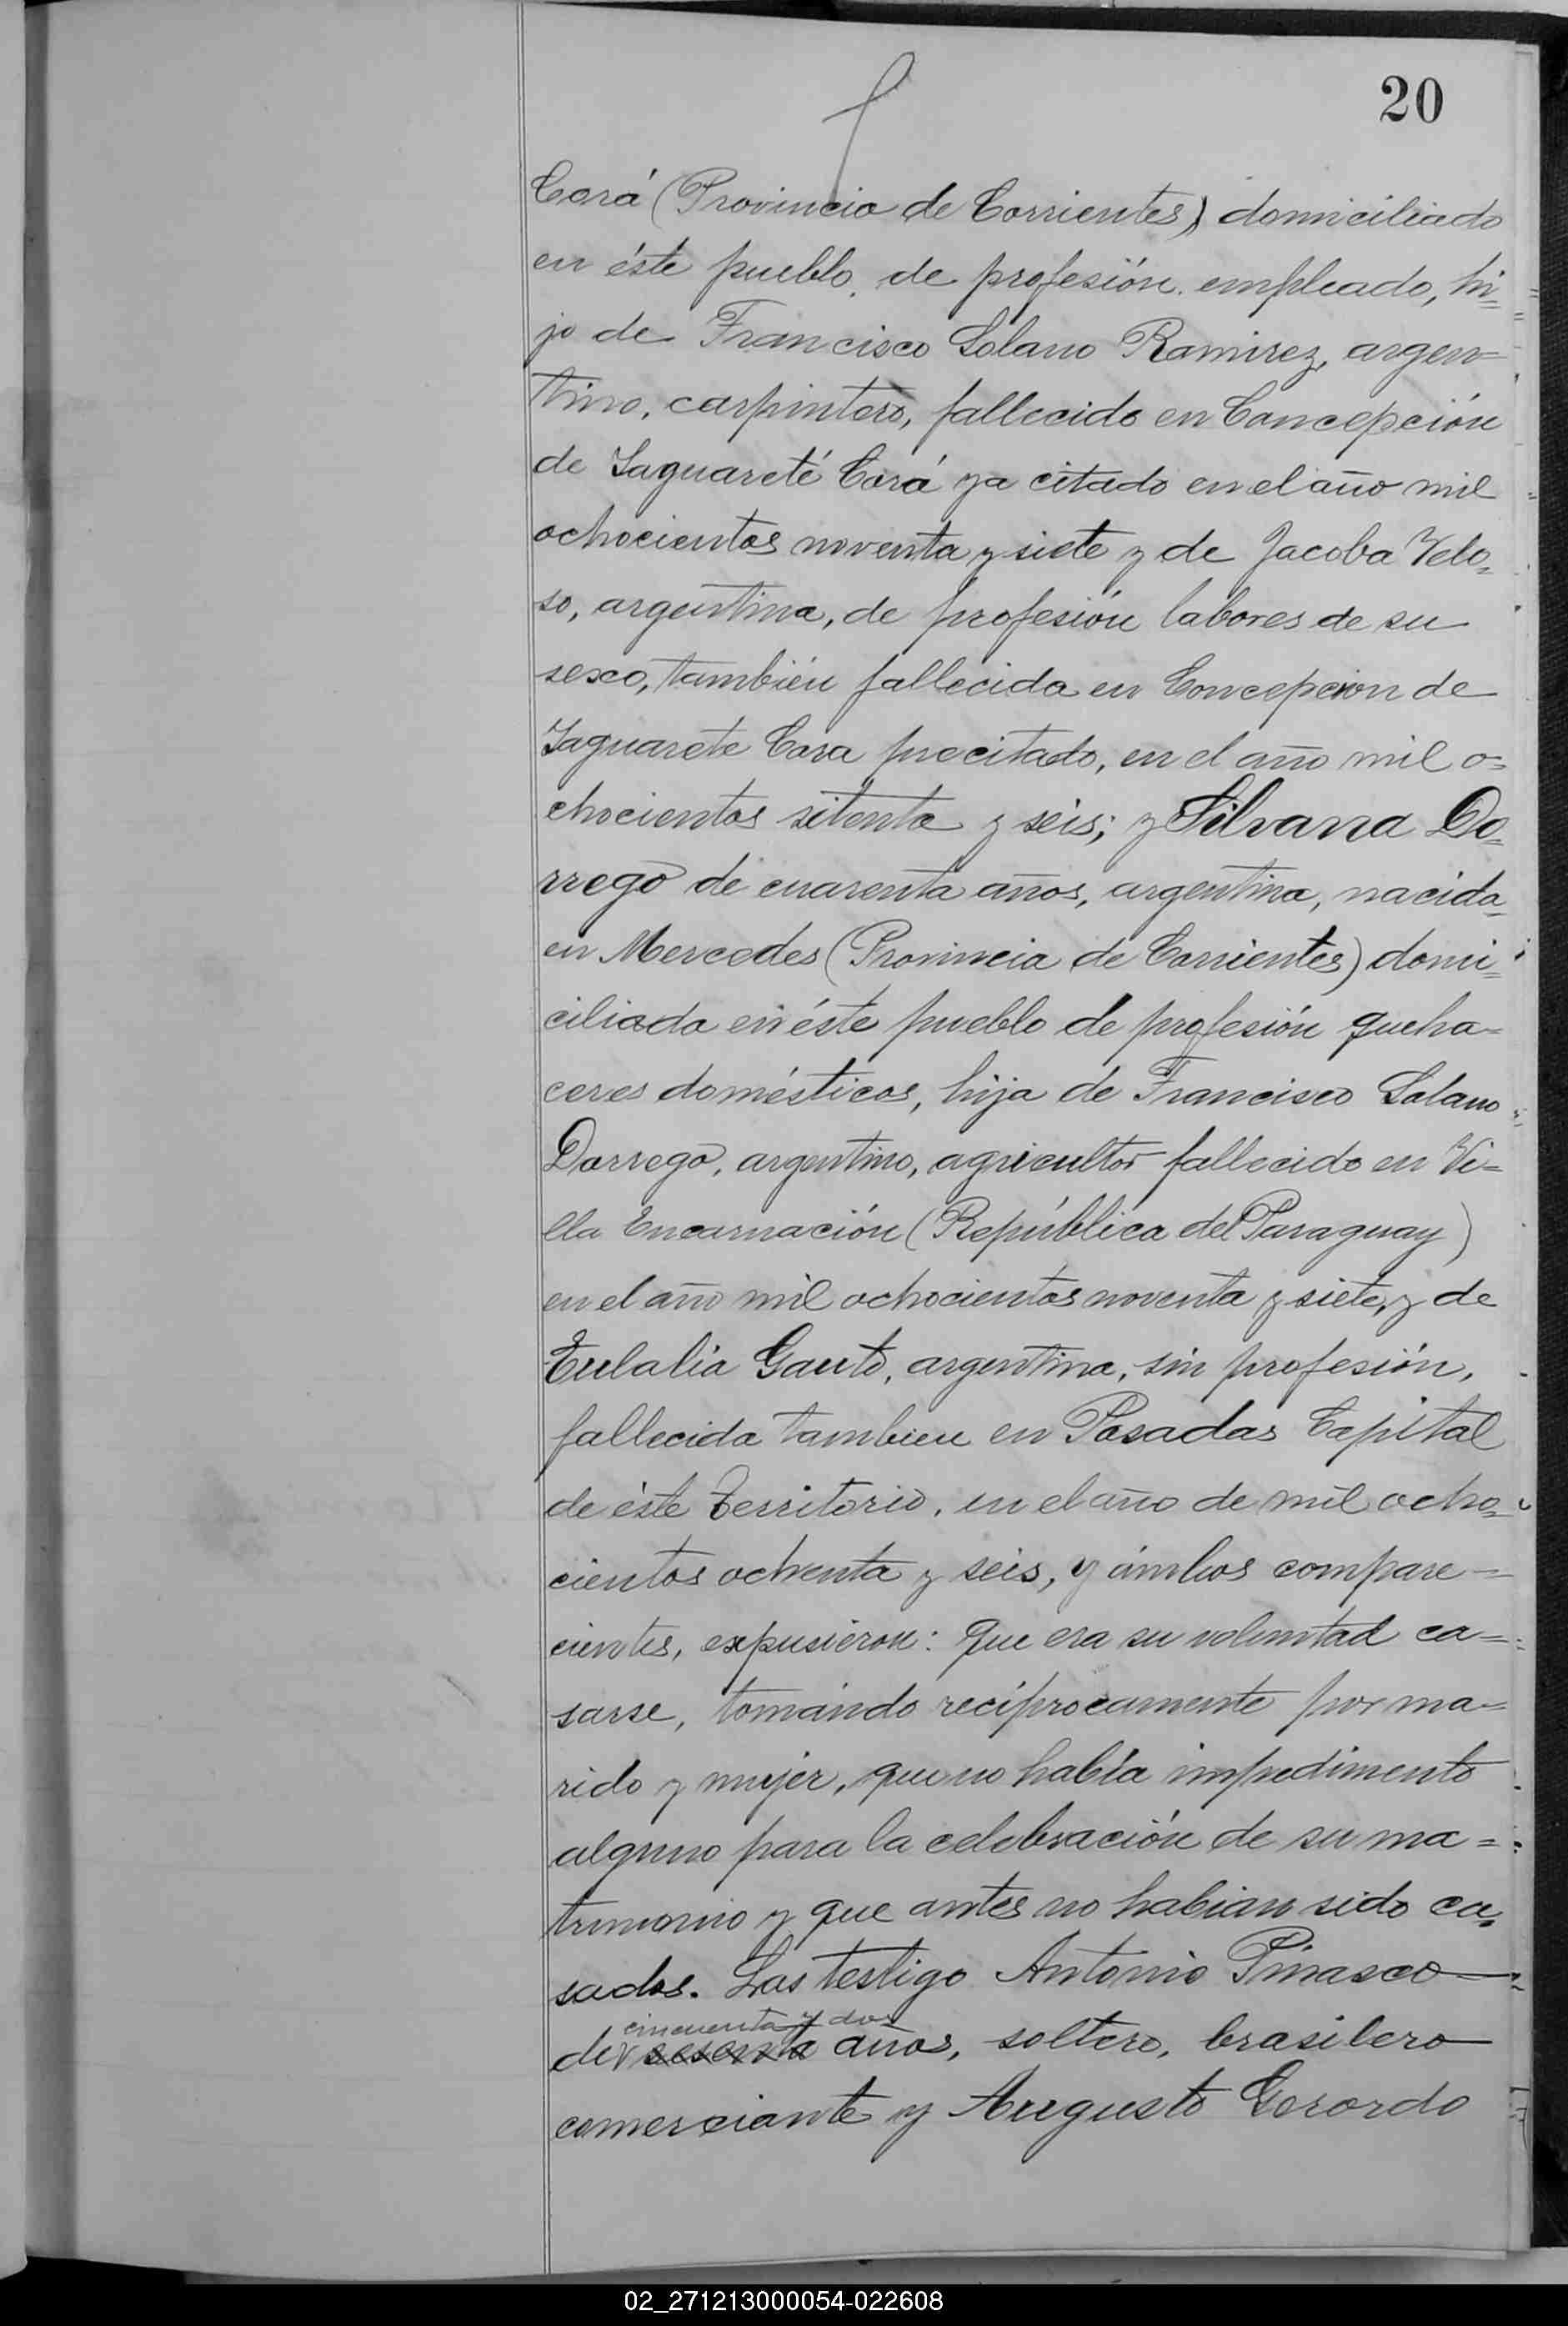 20
Corá (Provincia de Corrientes) domiciliado
en éste pueblo, de profesión empleado, hi=
jo de Francisco Solano Ramirez, argen=
tino, carpintero, fallecido en Concepción
de Yaguareté Corá ya citado en el año mil
ochocientos noventa y siete y de Jacoba Velo=
so, argentina, de profesión labores de su
sexo, también fallecida en Concepcion de
Yaguarete Cora precitado, en el año mil o=
chocientos setenta y seis; y Silvana Do=
rrego de cuarenta años, argentina, nacida
en Mercedes (Provincia de Corrientes) domi=
ciliada en éste pueblo de profesión queha=
ceres domésticos, hija de Francisco Solano
Dorrego, argentino, agricultor fallecido en Vi=
lla Encarnación (República del Paraguay)
en el año mil ochocientos noventa y siete, y de
Eulalia Gauto, argentina, sin profesión,
fallecida tambien en Posadas Capital
de éste Territorio, en el año de mil ocho=
cientos ochenta y seis, y ámbos compare=
cientes, expusieron: que era su voluntad ca=
sarse, tomándo recíprocamente por ma=
rido y mujer, que no había impedimento
alguno para la celebración de su ma=
trimonio y que antes no habian sido ca=
sados. Los testigo Antonio Pinasco
cincuenta y dos
de sesenta años, soltero, brasilero
comerciante y Augusto Gerardo
02_271213000054-022608